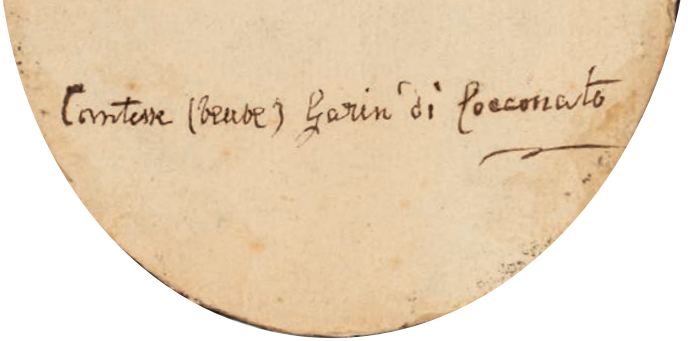 Comtesse (veuve) Garin di Cocconato